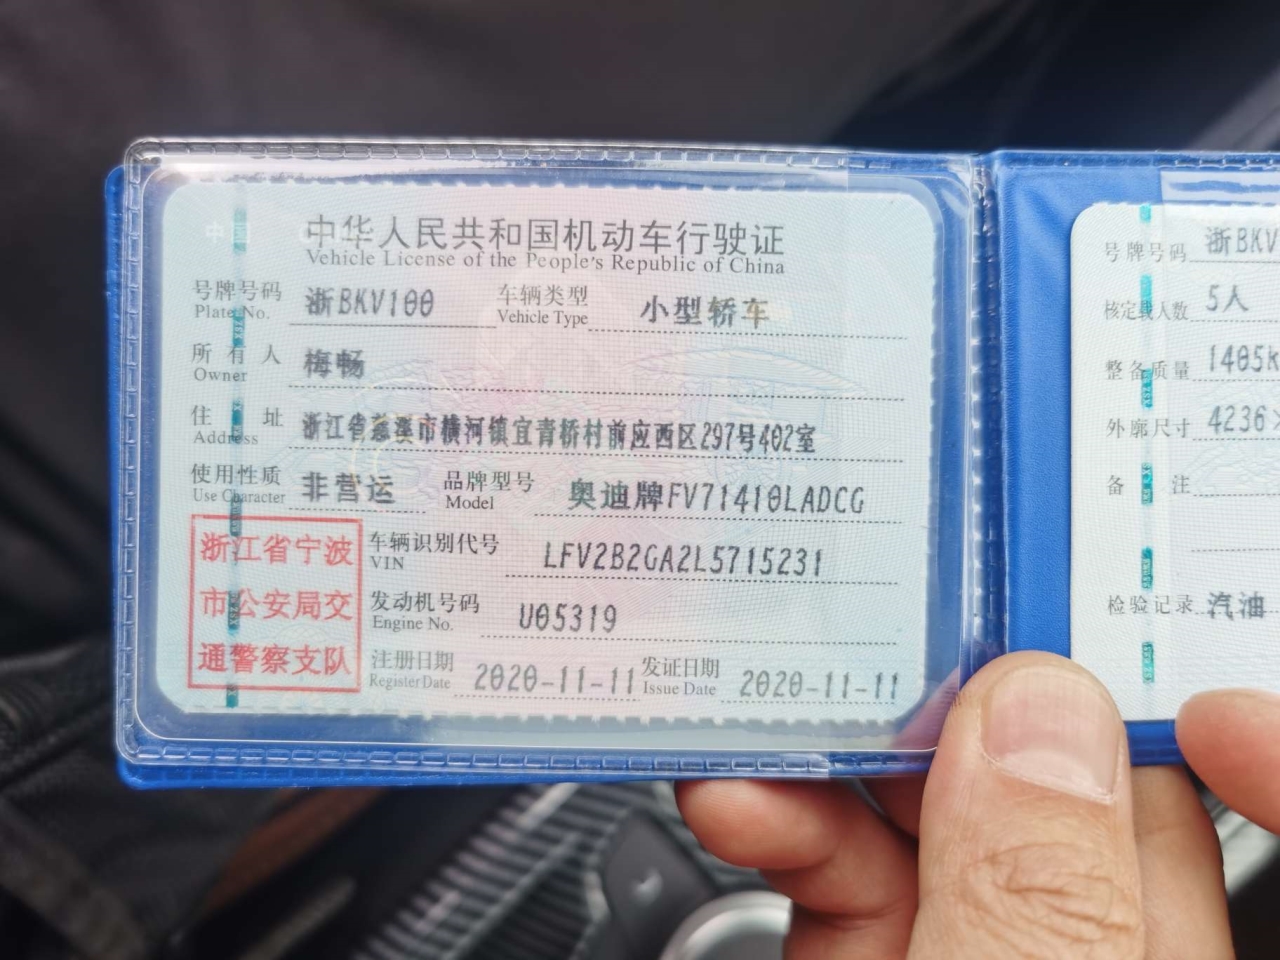 中华人民共和国机动车行驶证
Vehicle License of the People's Republic of China
号牌号码 浙BKV100 车辆类型 小型轿车
Plate No. Vehicle Type
所有人 梅畅
Owner
住址 浙江省慈溪市横河镇宜青桥村前应西区297号402室
Address
使用性质 非营运 品牌型号 奥迪牌FV71410LADCG
Use Character Model
浙江省宁波
市公安局交
通警察支队
车辆识别代号 LFV2B2GA2L5715231
VIN
发动机号码 U05319
Engine No.
注册日期 2020-11-11 发证日期 2020-11-11
Register Date Issue Date
号牌号码 浙BKV
核定载人数 5人
整备质量 1405k
外廓尺寸 4236×
备注
检验记录 汽油